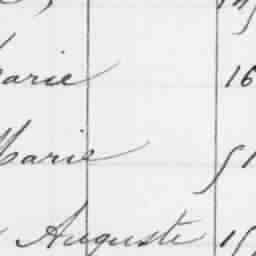 Marie 16
Marie 51
Auguste 15